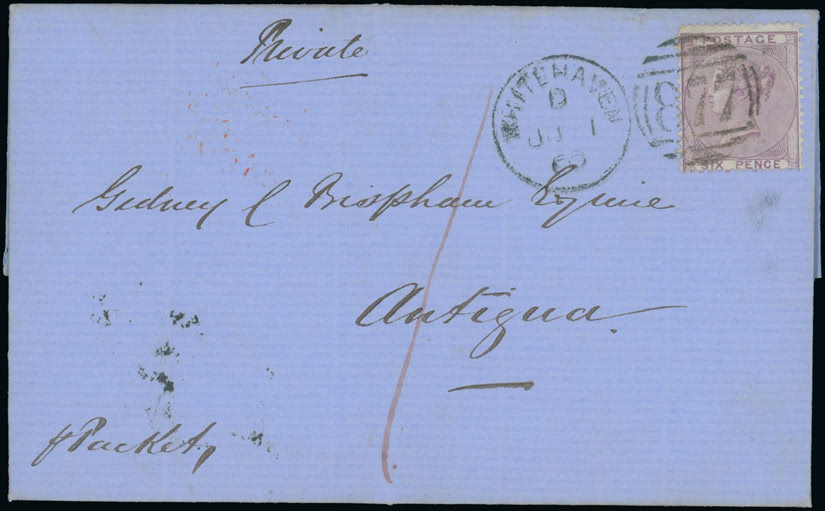 Private
WHITEHAVEN
D
JU 1
60
POSTAGE
877
SIX PENCE
Gedney C Bispham Esquire
Antigua
p Packet,
1